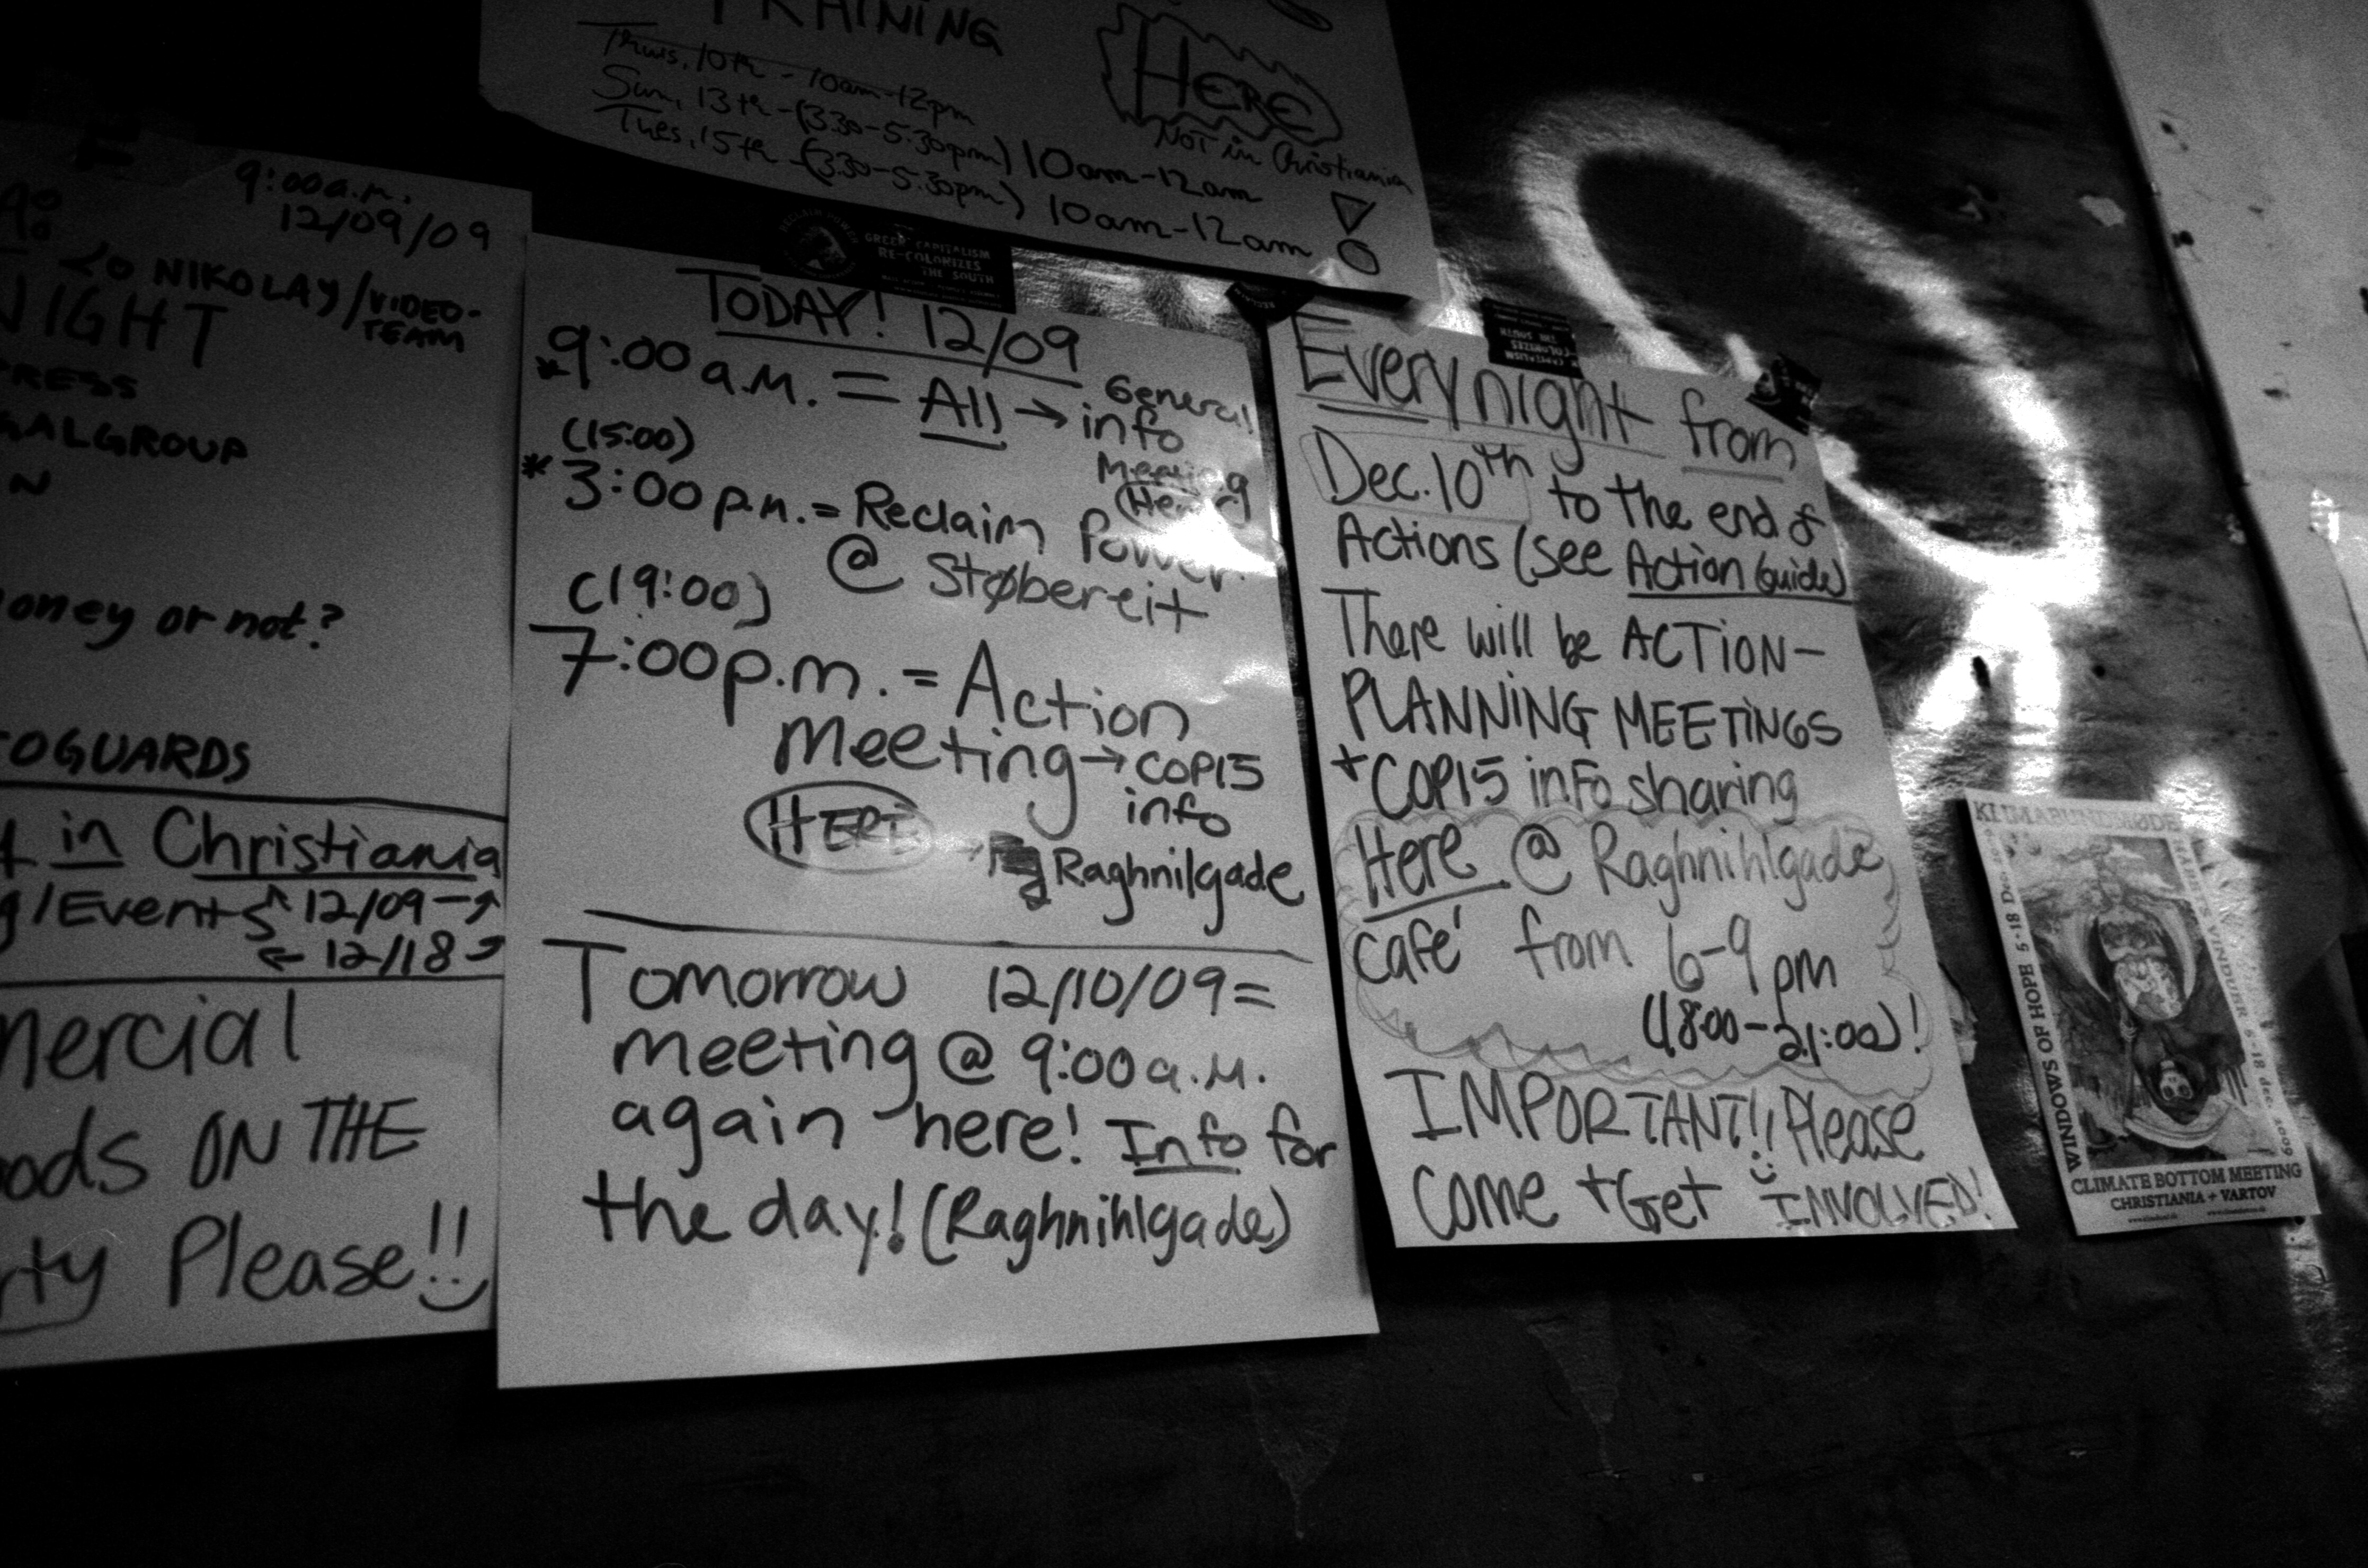 TRAINING
Thurs, 10th - 10am-12pm
Sun, 13th - (3.30-5.30pm) 10am-12am
Tues, 15th - (3.30-5.30pm) 10am-12am
HERE
NOT in Christiania
!
9:00 a.m.
12/09/09
NIKOLAY/VIDEO-
TEAM
NIGHT
RESS
GALGROUP
N
oney or not?
OGUARDS
in Christiania
g/Event 12/09 →
← 12/18
mercial
oods ON THE
rty Please!!
GREEN CAPITALISM
RE-COLONIZES
THE SOUTH
TODAY! 12/09
* 9:00 a.m. = All → General
info
Meeting
(Here)
(15:00)
* 3:00 p.m. = Reclaim Power
@ Støbereit
(19:00)
7:00 p.m. = Action
meeting → COP15
info
HERE → Raghnilgade
Tomorrow 12/10/09 =
meeting @ 9:00 a.m.
again here! Info for
the day! (Raghnihlgade)
CAPITALISM
COLONIZES
THE SOUTH
Every night from
Dec. 10th to the end of
Actions (see Action Guide)
There will be ACTION-
PLANNING MEETINGS
+ COP15 info sharing
Here @ Raghnihlgade
café from 6-9 pm
(18:00-21:00)!
IMPORTANT!! Please
come + Get INVOLVED!
KLIMABUNDMØDE
WINDOWS OF HOPE 5-18 Dec.
HAABETS VINDUER 5-18 dec. 2009
CLIMATE BOTTOM MEETING
CHRISTIANIA + VARTOV